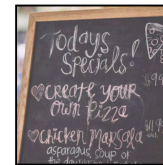 Todays
Specials!
create your
own pizza
chicken marsala
asparagus soup of